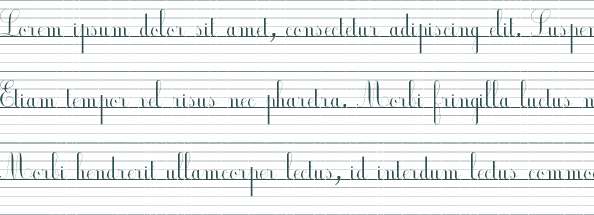 Lorem ipsum dolor sit amet, consectetur adipiscing elit. Susper
Etiam tempor vel risus nec pharetra. Morbi fringilla luctus n
Morbi hendrerit ullamcorper lectus, id interdum lectus commo